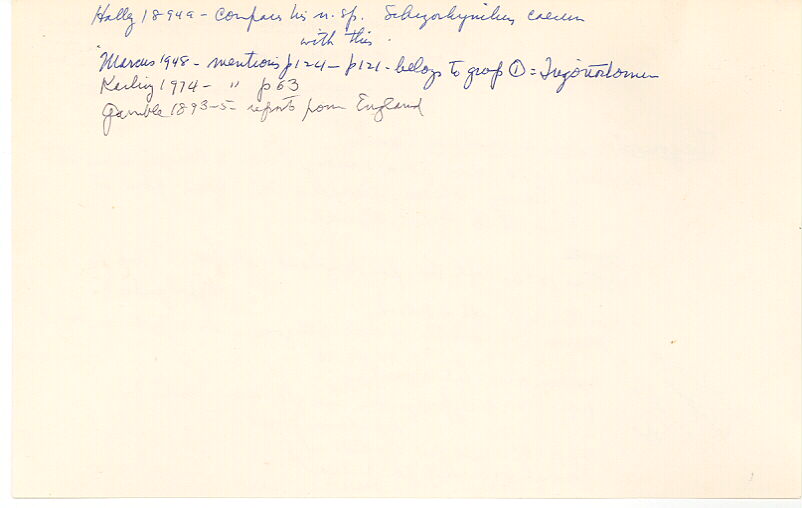 Hallez 1894a - compares his n. sp. Schizorhynchus coecus
with this.
Marcus 1948 - mentions p124 - p121 - belongs to group ① = Trigonostomum
Karling 1974 - " p63
Gamble 1893-5 - reports from England